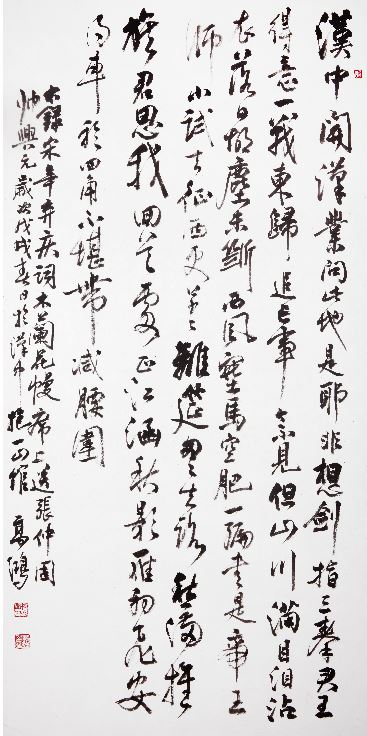 漢中開漢業問此地是耶非想劍指三秦君王
得意一戰東歸追亡事今不見但山川滿目泪沾
衣落日胡塵未斷西風塞馬空肥一編書是帝王
師小試去征西更草草離筵匆匆去路愁滿旌
旗君思我回首處正江涵秋影雁初飛安
得車輪四角不堪帶減腰圍
右錄宋辛弃疾詞木蘭花慢席上送張仲固
帥興元歲次戊戌春日於漢中抱一山館高鴻